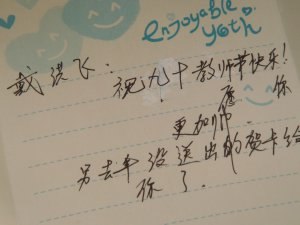 enjoyable
yoth
戴洪飞：祝九十教师节快乐！
愿 你
更加帅.
另去年没送出的贺卡给
你了.